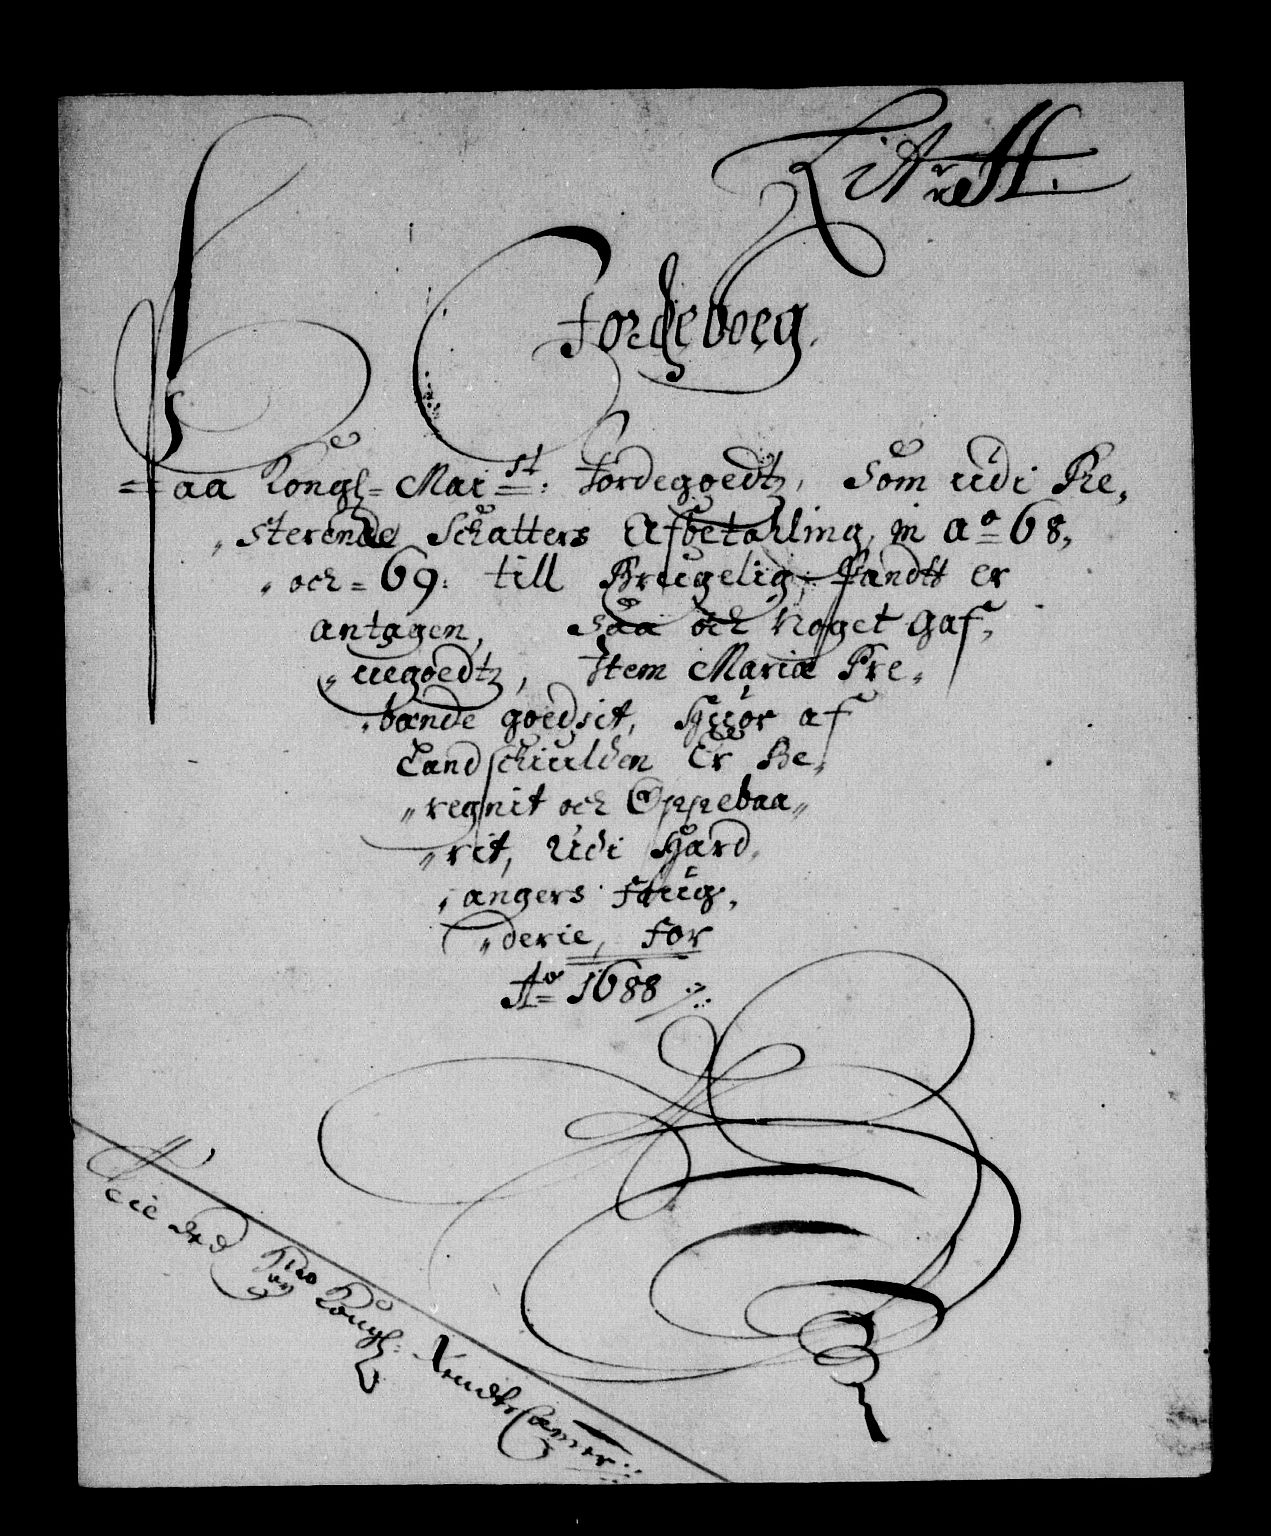 Litræ A.
Jordeboeg.
Paa Kongl= May:st: Jordegoedtz, Som udi Re,
,sterende Schatters Afbetahling, in Ao= 68,
,och= 69: till Brugelig, Pandtt er
antagen, Saa och Noget Gaf,
,,uegoedtz, Item Mariæ Pre,
,bænde goedsit, Huor af
Landschulden Er Be,
,,regnit och Oppebaa,,
,,rit, Udi Hard,
,angers foug,
,,derie, for
Ao= 1688
Kongl: RendteCammer